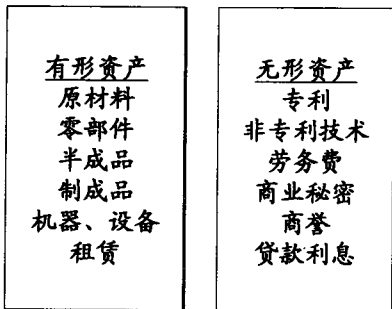 有形资产
原材料
零部件
半成品
制成品
机器、设备
租赁
无形资产
专利
非专利技术
劳务费
商业秘密
商誉
贷款利息